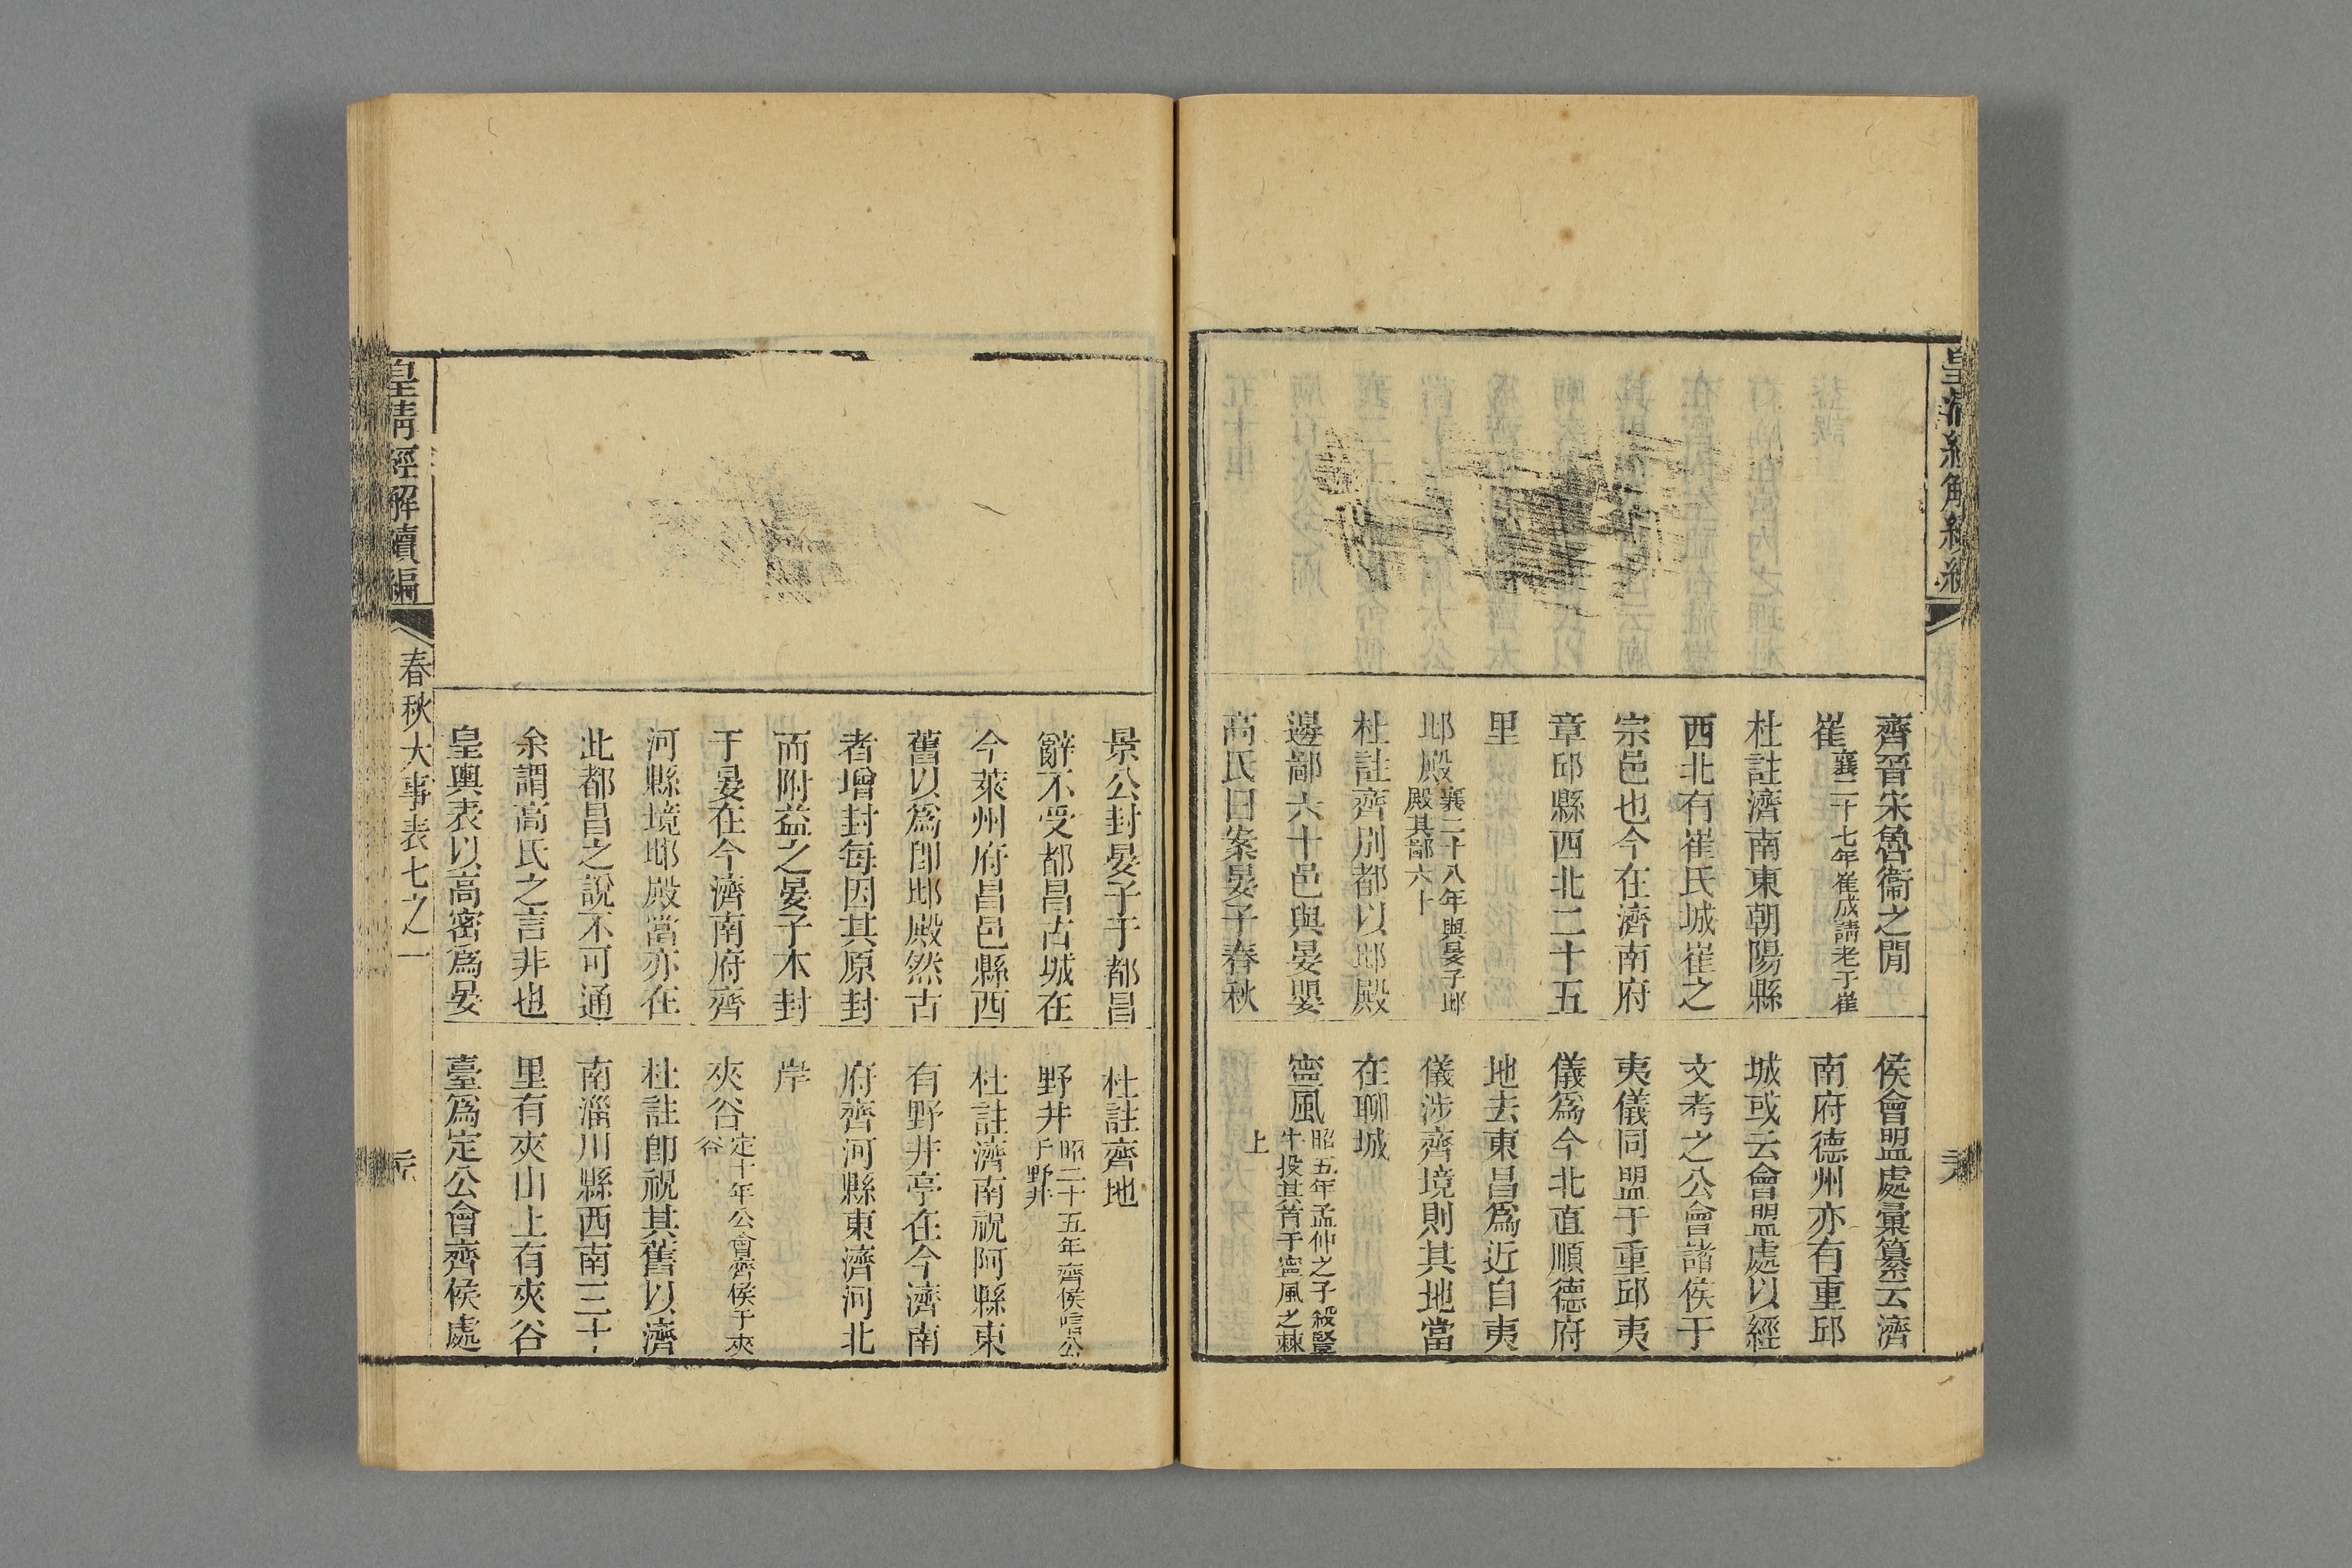 齊晉宋魯衞之閒
崔襄二十七年崔成請老于崔
杜註濟南東朝陽縣
西北有崔氏城崔之
宗邑也今在濟南府
章邱縣西北二十五
里
邶殿襄二十八年與晏子邶
殿其鄙六十
杜註齊別都以邶殿
邊鄙六十邑與晏嬰
高氏曰案晏子春秋
侯會盟處彙纂云濟
南府德州亦有重邱
城或云會盟處以經
文考之公會諸侯于
夷儀同盟于重邱夷
儀爲今北直順德府
地去東昌爲近自夷
儀涉齊境則其地當
在聊城
寧風昭五年孟仲之子殺豎
牛投其首于寧風之棘
上
景公封晏子于都昌
辭不受都昌古城在
今萊州府昌邑縣西
舊以爲卽邶殿然古
者增封每因其原封
而附益之晏子本封
于晏在今濟南府齊
河縣境邶殿當亦在
此都昌之說不可通
余謂高氏之言非也
皇輿表以高密爲晏
杜註齊地
野井昭二十五年齊侯唁公
于野井
杜註濟南祝阿縣東
有野井亭在今濟南
府齊河縣東濟河北
岸
夾谷定十年公會齊侯于夾
谷
杜註卽祝其舊以濟
南淄川縣西南三十
里有夾山上有夾谷
臺爲定公會齊侯處
皇清經解續編
春秋大事表七之一